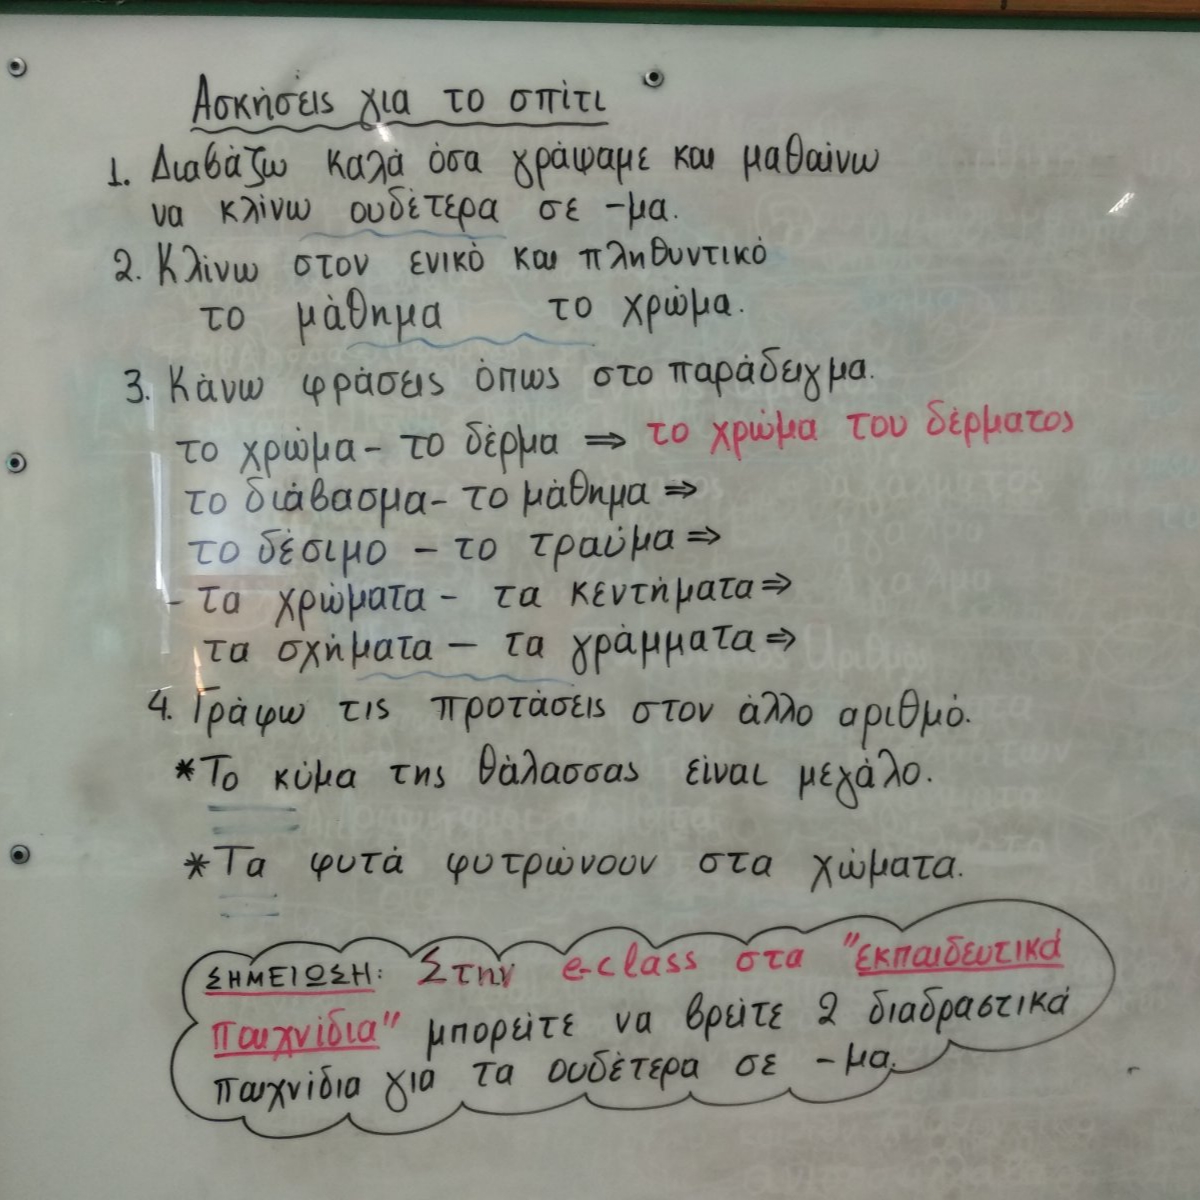 Ασκήσεις για το σπίτι
1. Διαβάζω καλά όσα γράψαμε και μαθαίνω
να κλίνω ουδέτερα σε -μα.
2. Κλίνω στον ενικό και πληθυντικό
το μάθημα το χρώμα.
3. Κάνω φράσεις όπως στο παράδειγμα.
το χρώμα - το δέρμα ⇒ το χρώμα του δέρματος
το διάβασμα - το μάθημα ⇒
το δέσιμο - το τραύμα ⇒
- τα χρώματα - τα κεντήματα ⇒
τα σχήματα - τα γράμματα ⇒
4. Γράφω τις προτάσεις στον άλλο αριθμό.
*Το κύμα της θάλασσας είναι μεγάλο.
*Τα φυτά φυτρώνουν στα χώματα.
ΣΗΜΕΙΩΣΗ: Στην e-class στα "εκπαιδευτικά
παιχνίδια" μπορείτε να βρείτε 2 διαδραστικά
παιχνίδια για τα ουδέτερα σε -μα.